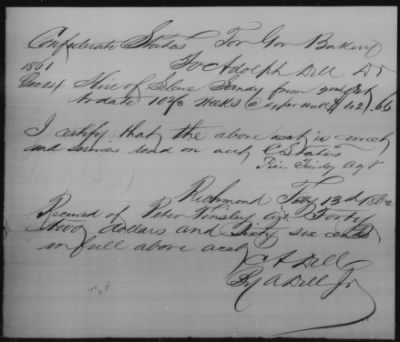 Confederate States For Gov Baking
1861 To Adolph Dill Dr
Hire of Slave from
to date 10 4/6 weeks @ per week $ 42.66
I certify that the above acct is correct
and services rend on acct C States
Agt
Richmond Feby 13d 1862
Received of Peter Tinsley agt Forty
two dollars and Sixty six cents
in full above acct
A Dill
By A Dill Jr